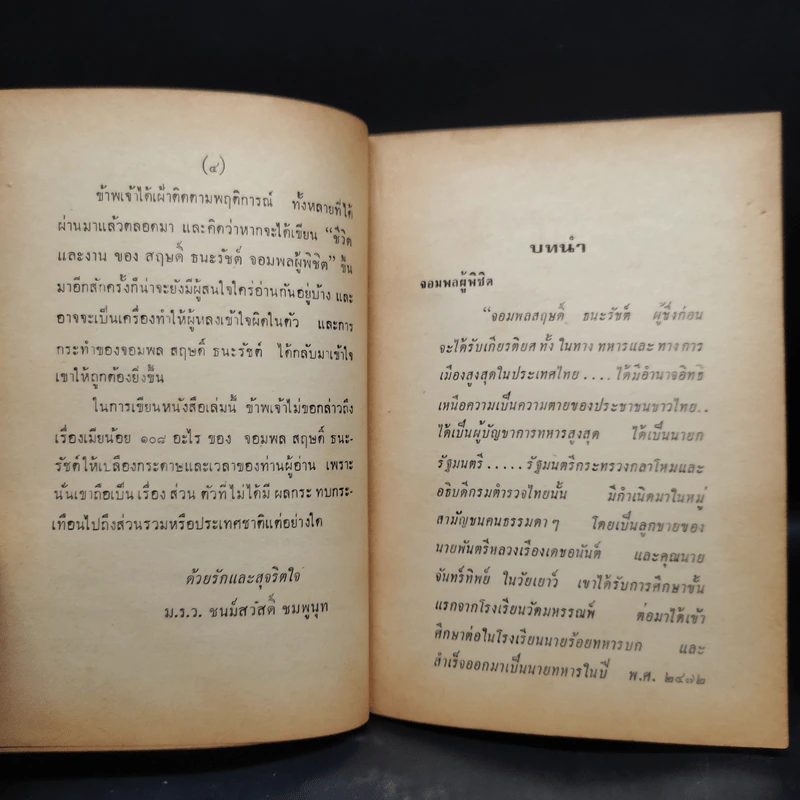 (๔)
ข้าพเจ้าได้เฝ้าติดตามพฤติการณ์ ทั้งหลายที่ได้
ผ่านมาแล้วตลอดมา และคิดว่าหากจะได้เขียน “ชีวิต
และงาน ของ สฤษดิ์ ธนะรัชต์ จอมพลผู้พิชิต” ขึ้น
มาอีกสักครั้งก็น่าจะยังมีผู้สนใจใคร่อ่านกันอยู่บ้าง และ
อาจจะเป็นเครื่องทำให้ผู้หลงเข้าใจผิดในตัว และการ
กระทำของจอมพล สฤษดิ์ ธนะรัชต์ ได้กลับมาเข้าใจ
เขาให้ถูกต้องยิ่งขึ้น
ในการเขียนหนังสือเล่มนี้ ข้าพเจ้าไม่ขอกล่าวถึง
เรื่องเมียน้อย ๑๐๘ อะไร ของ จอมพล สฤษดิ์ ธนะ-
รัชต์ให้เปลืองกระดาษและเวลาของท่านผู้อ่าน เพราะ
นั่นเขาถือเป็น เรื่อง ส่วน ตัวที่ ไม่ได้มี ผลกระ ทบกระ-
เทือนไปถึงส่วนรวมหรือประเทศชาติแต่อย่างใด
ด้วยรักและสุจริตใจ
ม.ร.ว. ชนม์สวัสดิ์ ชมพูนุท
บทนำ
จอมพลผู้พิชิต
“จอมพลสฤษดิ์ ธนะรัชต์ ผู้ซึ่งก่อน
จะได้รับเกียรติยศ ทั้ง ในทาง ทหารและ ทาง การ
เมืองสูงสุดในประเทศไทย .... ได้มีอำนาจอิทธิ
เหนือความเป็นความตายของประชาชนชาวไทย..
ได้เป็นผู้บัญชาการทหารสูงสุด ได้เป็นนายก
รัฐมนตรี ..... รัฐมนตรีกระทรวงกลาโหมและ
อธิบดีกรมตำรวจไทยนั้น มีกำเนิดมาในหมู่
สามัญชนคนธรรมดา ๆ โดยเป็นลูกชายของ
นายพันตรีหลวงเรืองเดชอนันต์ และคุณนาย
จันทร์ทิพย์ ในวัยเยาว์ เขาได้รับการศึกษาขั้น
แรกจากโรงเรียนวัดมหรรณพ์ ต่อมาได้เข้า
ศึกษาต่อในโรงเรียนนายร้อยทหารบก และ
สำเร็จออกมาเป็นนายทหารในปี พ.ศ. ๒๔๗๒